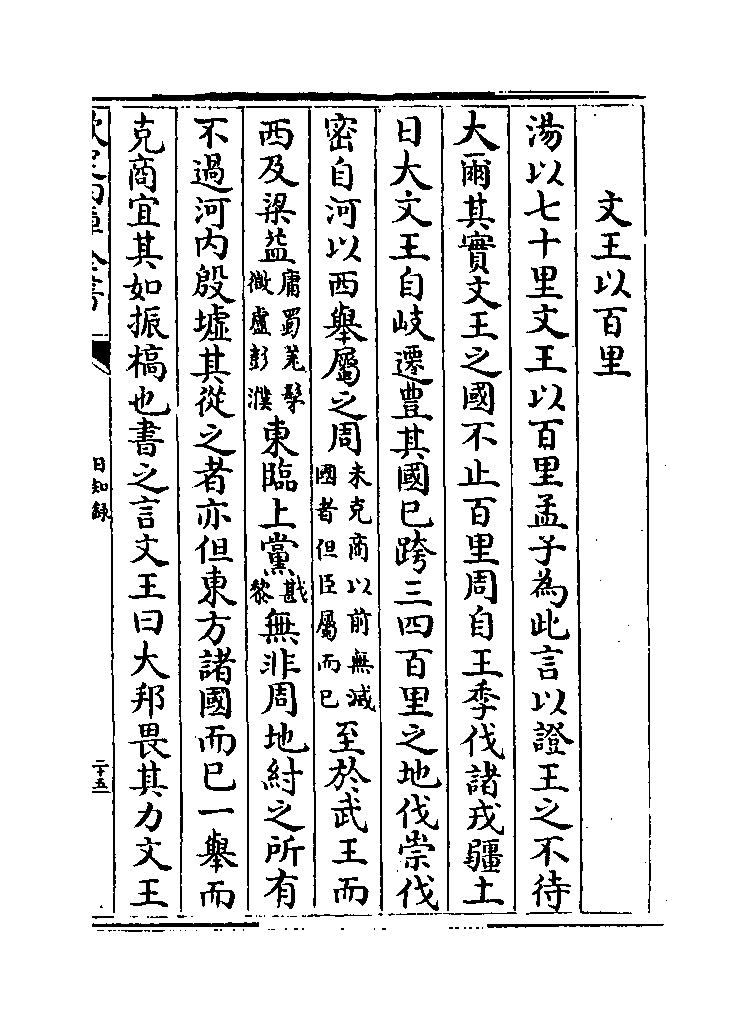 文王以百里
湯以七十里文王以百里孟子為此言以證王之不待
大爾其實文王之國不止百里周自王季伐諸戎疆土
日大文王自岐遷豊其國已跨三四百里之地伐崇伐
密自河以西舉屬之周未克商以前無滅國者但臣屬而已至於武王而
西及梁益庸蜀羌髳微盧彭濮東臨上黨戡黎無非周地紂之所有
不過河内殷墟其從之者亦但東方諸國而已一舉而
克商宜其如振槁也書之言文王曰大邦畏其力文王
日知録
二十五